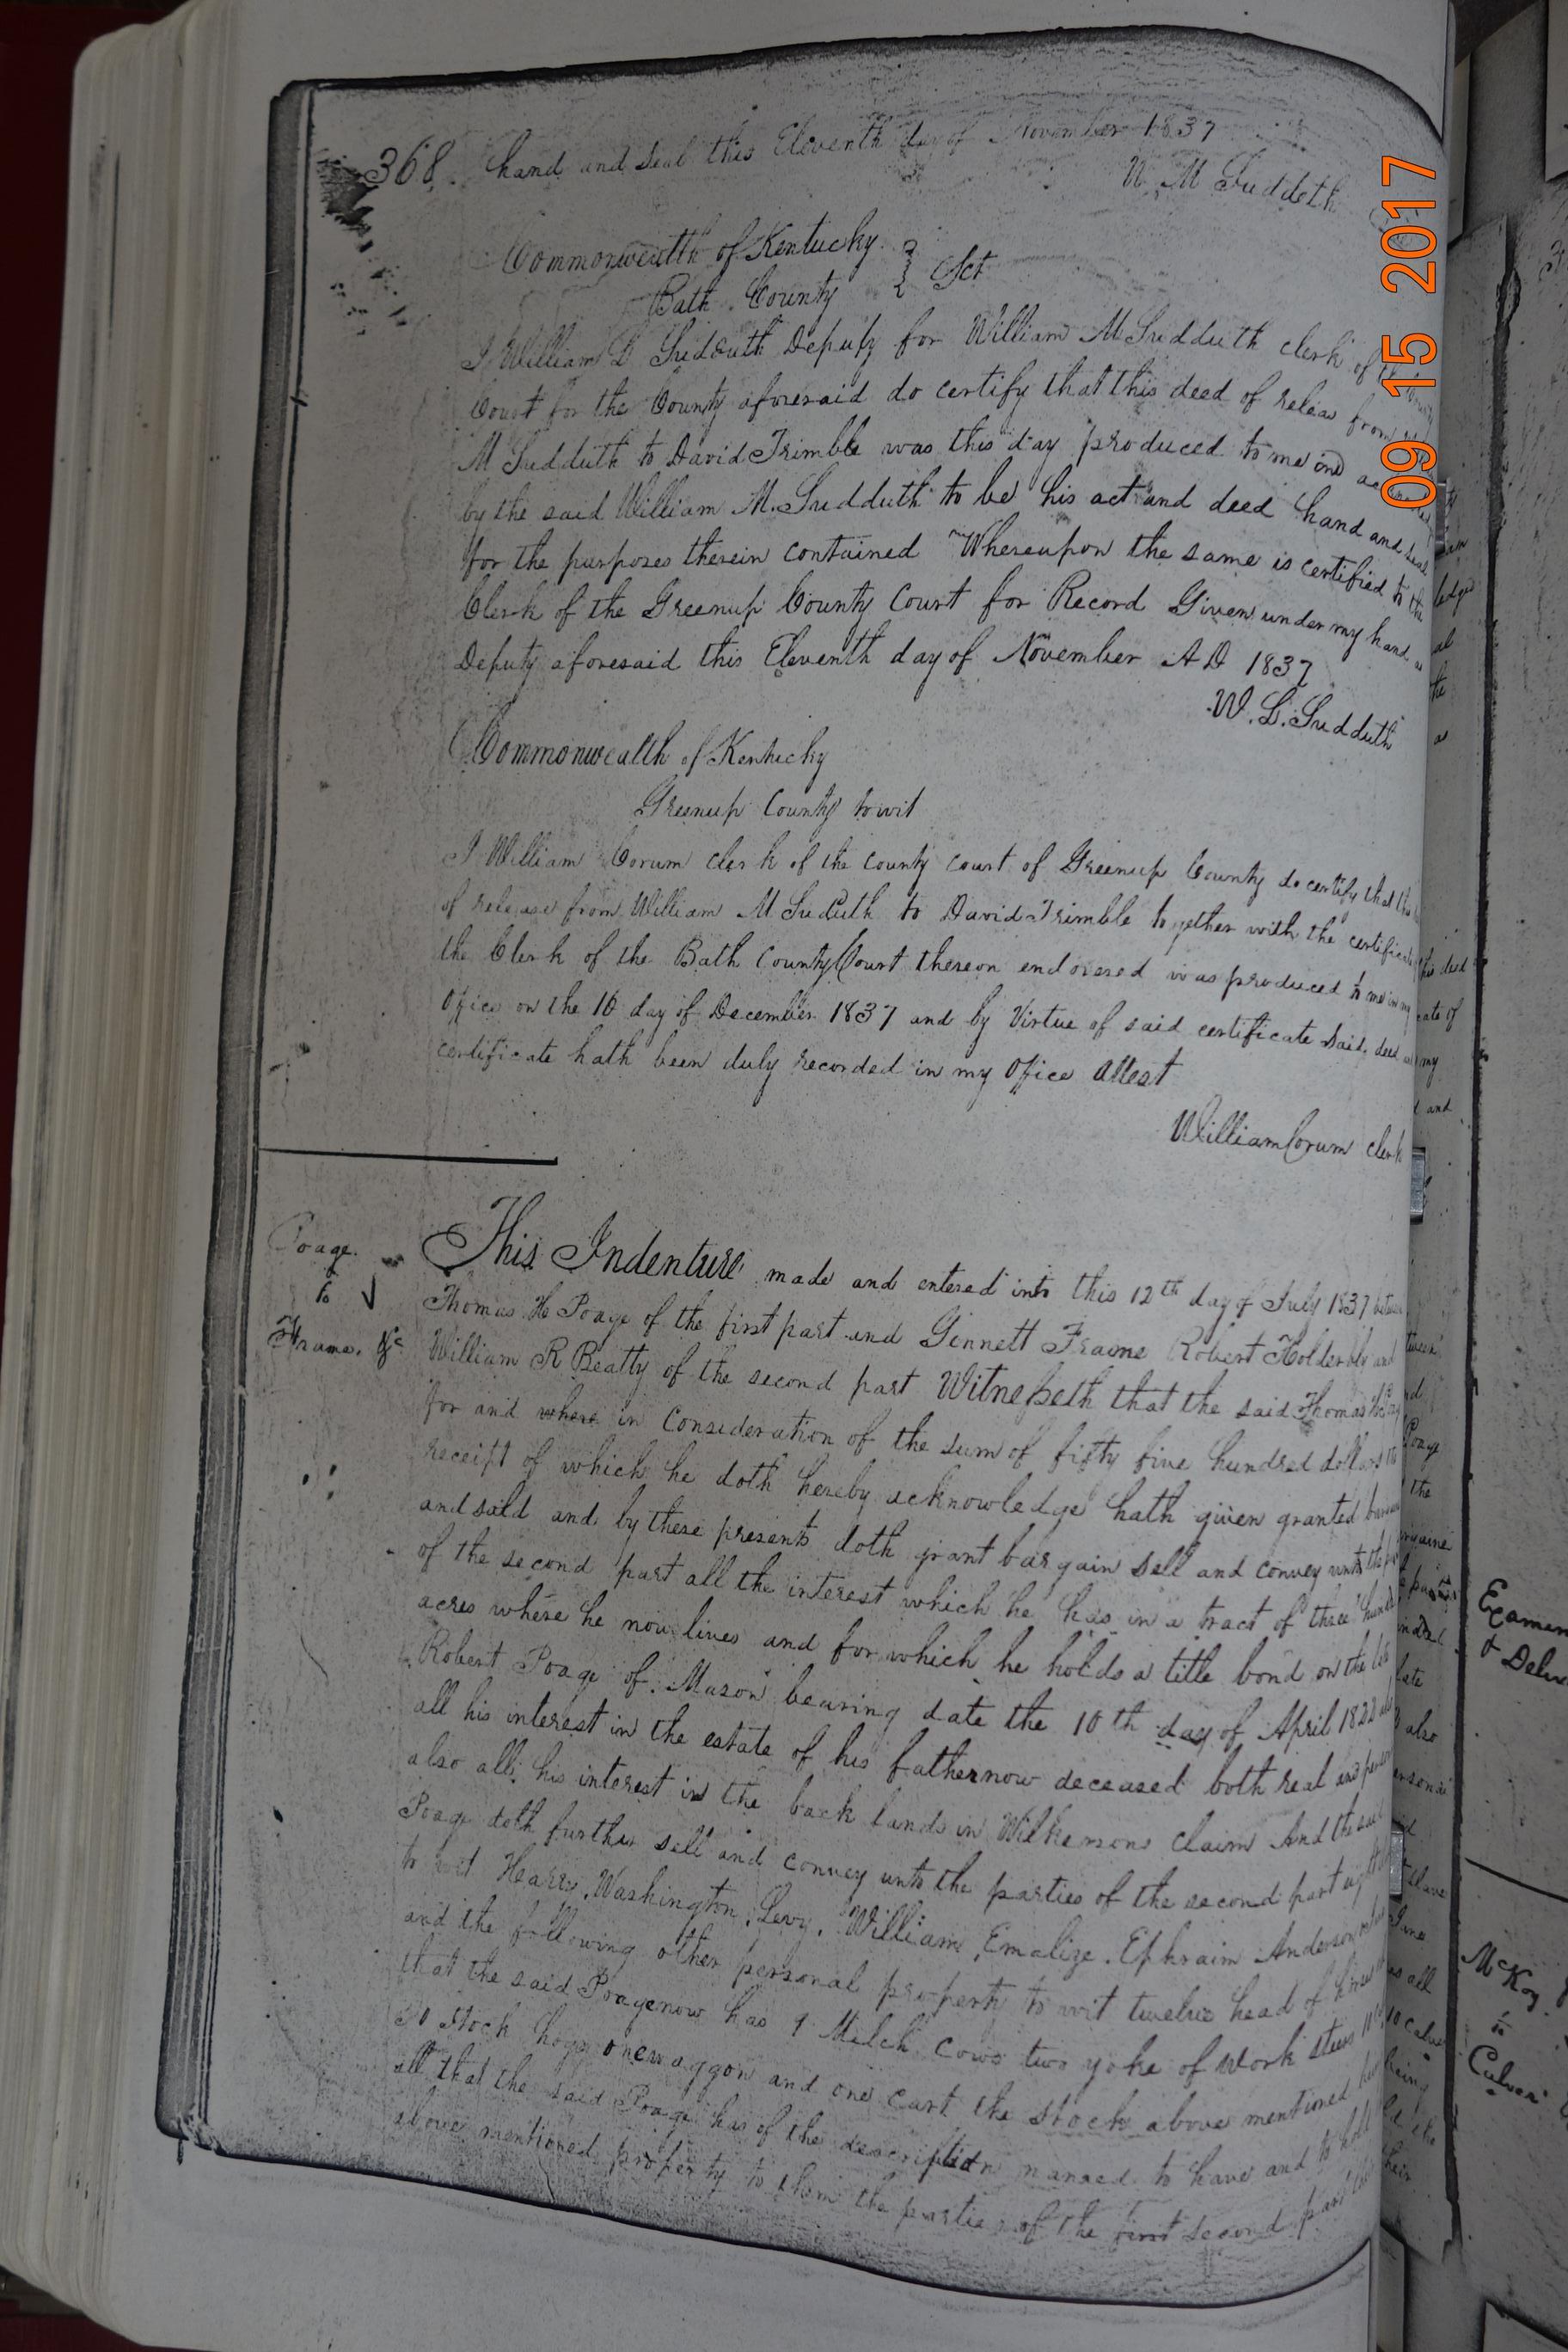 368. hand and seal this Eleventh day of November 1837
W. M Sudduth
Commonwealth of Kentucky
Bath County } Sct
I William L Sudduth Deputy for William M Sudduth clerk of the
Court for the County aforesaid do certify that this deed of releas from
M Sudduth to David Trimble was this day produced to me and
by the said William M. Sudduth to be his act and deed hand and seal
for the purposes therein contained Whereupon the same is certified to the
Clerk of the Greenup County Court for Record Given under my hand as
Deputy aforesaid this Eleventh day of November A D 1837
W. L. Sudduth
Commonwealth of Kentucky
Greenup County towit
I William Corum clerk of the county court of Greenup County do certify that this deed
of release from William M Suduth to David Trimble together with the certificate of
the Clerk of the Bath County Court thereon endorsed was produced to me in my
office on the 16 day of December 1837 and by Virtue of said certificate said deed and
certificate hath been duly recorded in my office Attest
William Corum clerk
Poage
to
Frame. &c
This Indenture made and entered into this 12th day of July 1837 between
Thomas H Poage of the first part and Ginnett Frame Robert Holderby and
William R Beatty of the second part Witnesseth that the said Thomas H Poage
for and where in consideration of the sum of fifty five hundred dollars the
receipt of which he doth hereby acknowledge hath given granted bargained
and sold and by these presents doth grant bargain sell and convey unto the parties
of the second part all the interest which he has in a tract of three hundred
acres where he now lives and for which he holds a title bond on the late
Robert Poage of Mason bearing date the 10th day of April 1822 also
all his interest in the estate of his father now deceased both real and personal
also all his interest in the back lands in Wilkersons claim And the said
Poage doth further sell and convey unto the parties of the second part eight slaves
to wit Harry, Washington, Levy, William, Emalize, Ephraim Anderson
and the following other personal property to wit twelve head of horses
that the said Poage now has 9 Milch cows two yoke of work steers 10 calves
stock hogs one waggon and one cart the stock above mentioned being
all that the said Poage has of the description named to have and to hold the
above mentioned property to them the parties of the first second part their
Examin
& Deliv
McKoy
to
Culver
09 15 2017